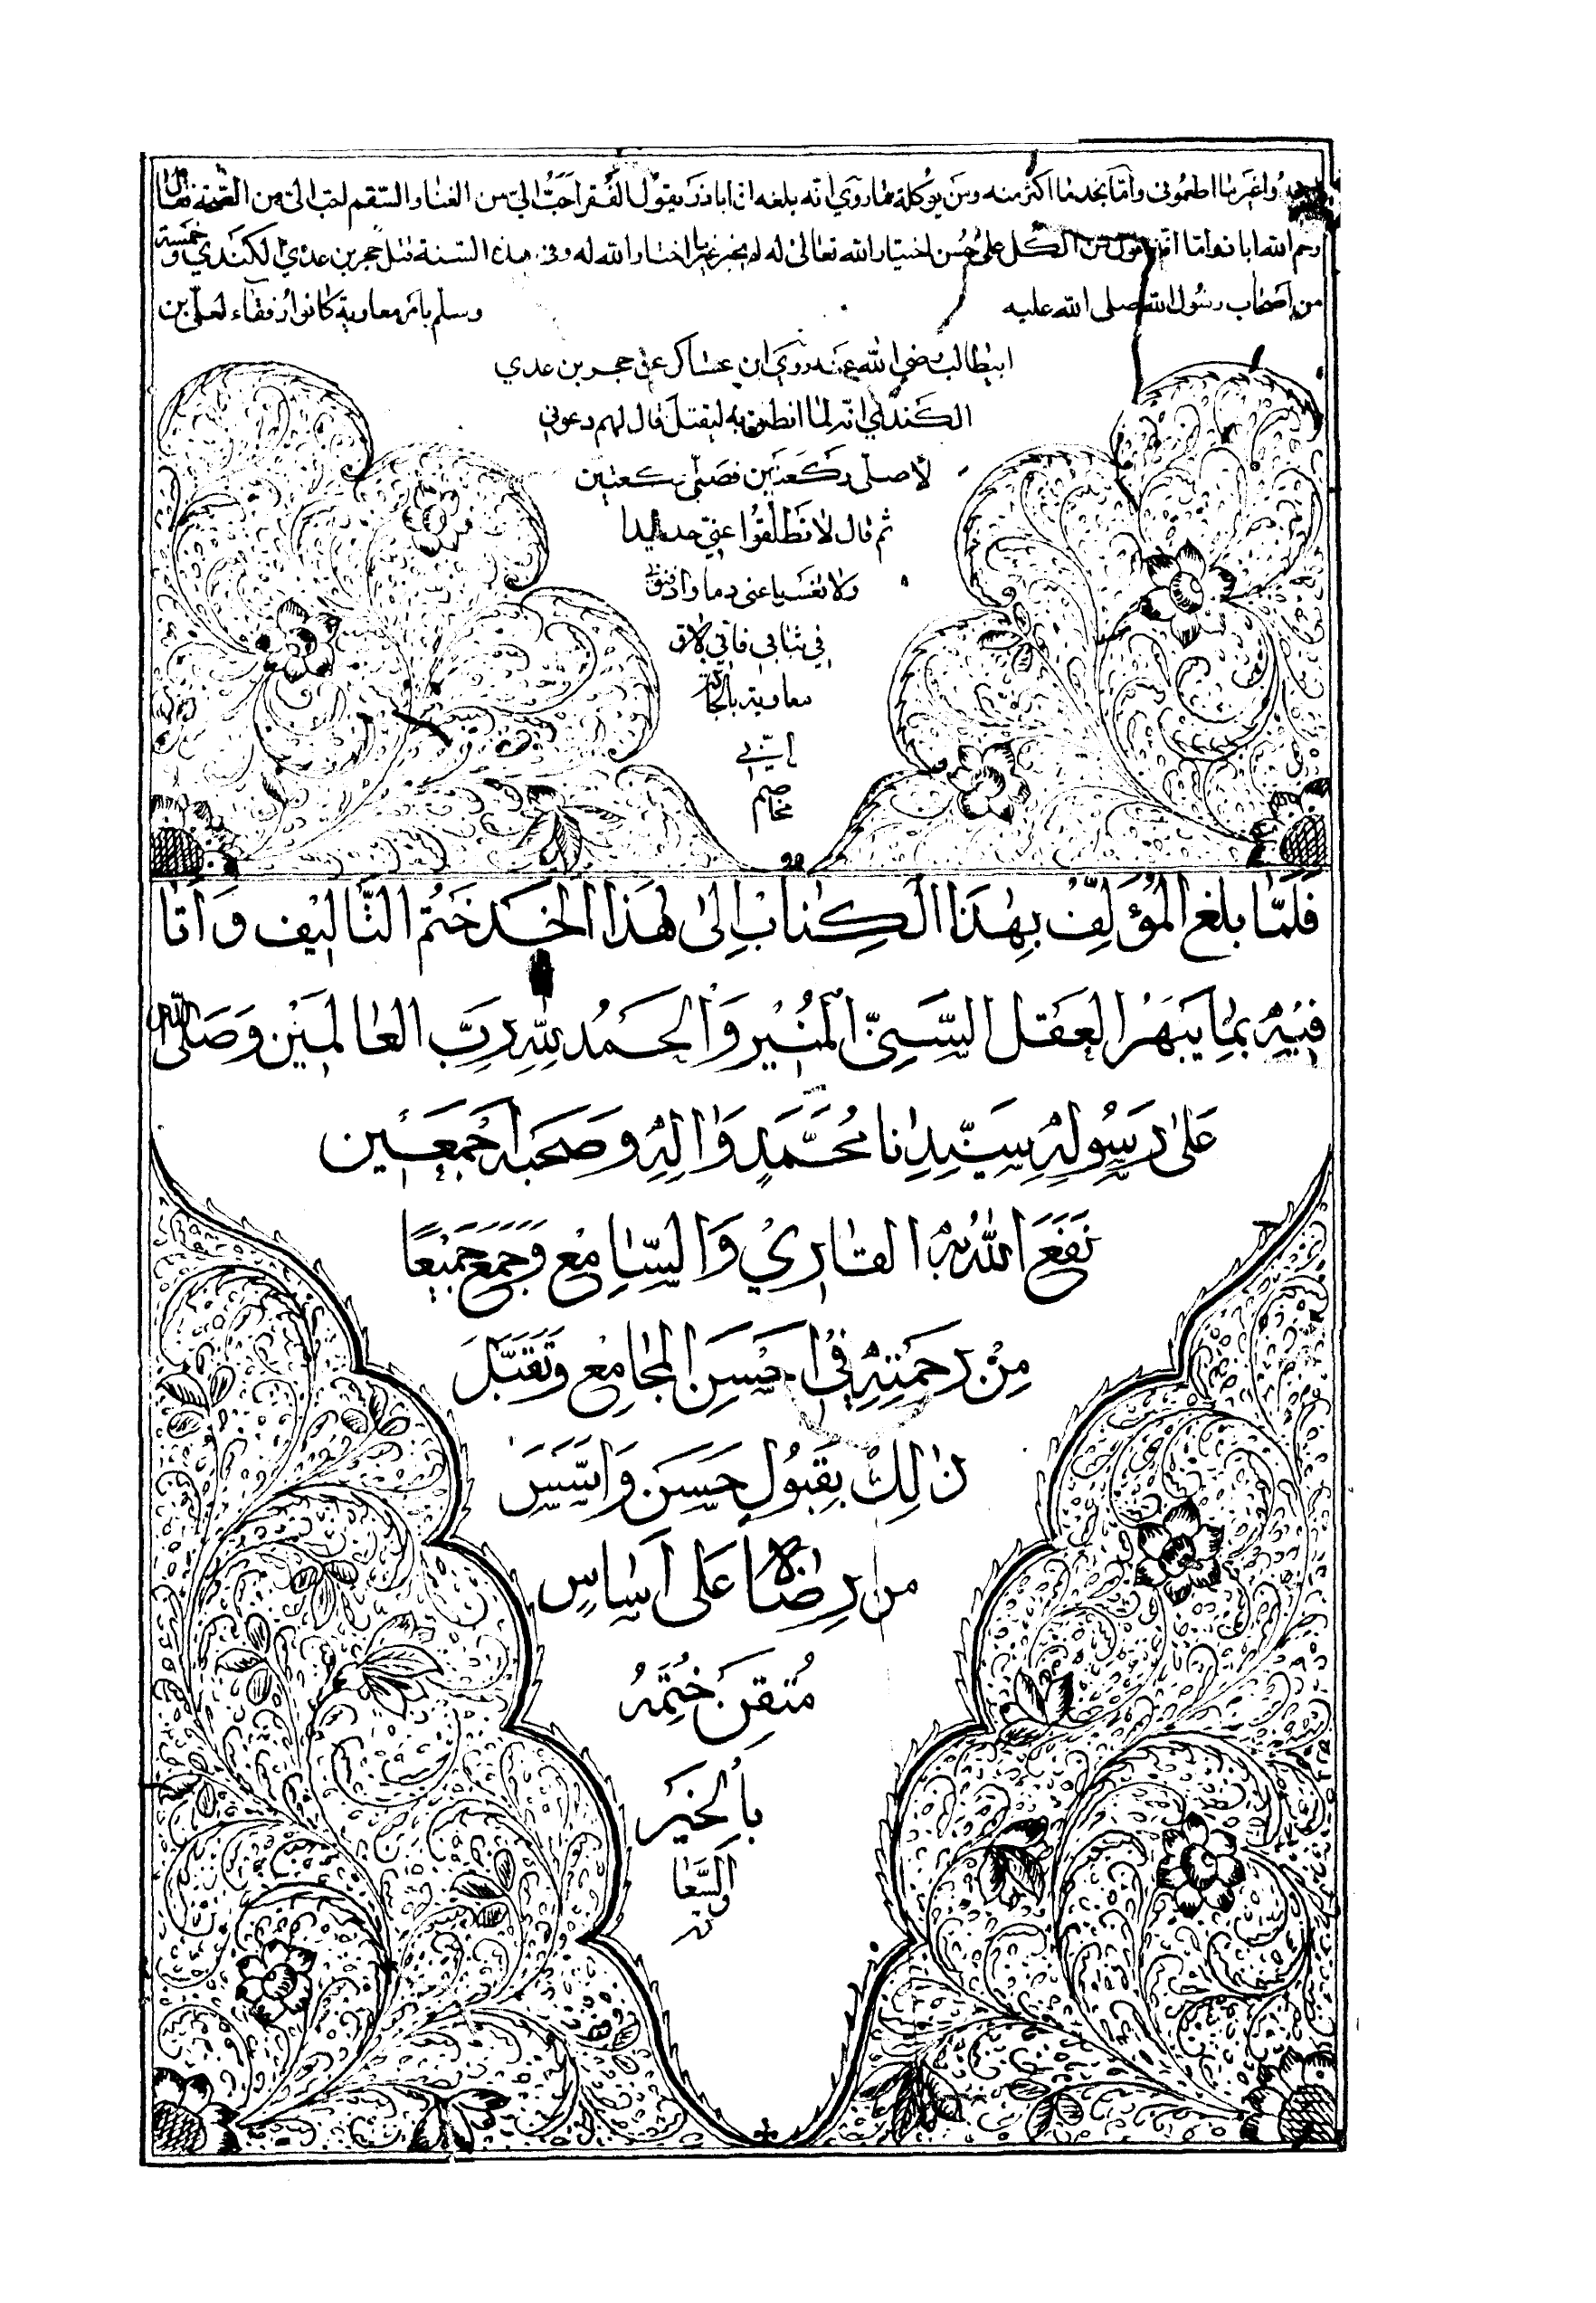 واغبر ما اطعموني وأما نجد ما اكثر منه ومن يوكله مما روي انه بلغه ان اباذر يقول الفقر احَبُّ اليّ من الغنا والسّقم احب اليّ من الصّحّة فقال
رحم الله اباذر اما انا من اتكل على حُسن اختيار الله تعالى له لم يخير غير ما اختار الله له وفي هذه السّنة قتل حجر بن عدي الكندي وخمسة
من اصحاب رسول الله صلى الله عليه وسلم بامر معاوية كانوا رفقآء لعلي بن
ابيطالب رضي الله عنه روي ابن عساكر عن حجر بن عدي
الكندي انه لما انطلق به ليقتل قال لهم دعوني
لاصلي ركعتين فصلّى ركعتين
ثم قال لا تطلقوا عني حديدا
ولا تغسلوا عني دما وادفنوني
في ثيابي فاني لاق
معاوية بالجادة
إنّي
مخاصم
فَلَمّا بلغ المُؤَلِّف بِهٰذا الكِتابِ اِلىٰ هٰذا الحَدّ خَتَم التّاليف وَاَتا
فيهِ بِما يَبهَرُ العَقل السَّنِيّ المُنير وَالحَمدُ لِلّٰهِ رَبِّ العالَمِيْن وَصَلى الله
عَلىٰ رَسُولِهِ سَيِّدِنا مُحَمَّدٍ وَاٰلِهِ وصَحبه اَجمَعين
نَفَعَ اللهُ بِهِ القارِيْ وَالسّامِعْ وَجَمَع جَميعًا
مِنْ رحمَتِهِ فِي احسَنِ المجامِع وتَقَبَّلَ
ذٰلِكَ بِقَبُولٍ حَسَن وَاَسَّسَ
من رِضاهُ عَلى اَسَاسٍ
مُتقِن خُتِمَهُ
بِالخَير
والسَّعا
دة